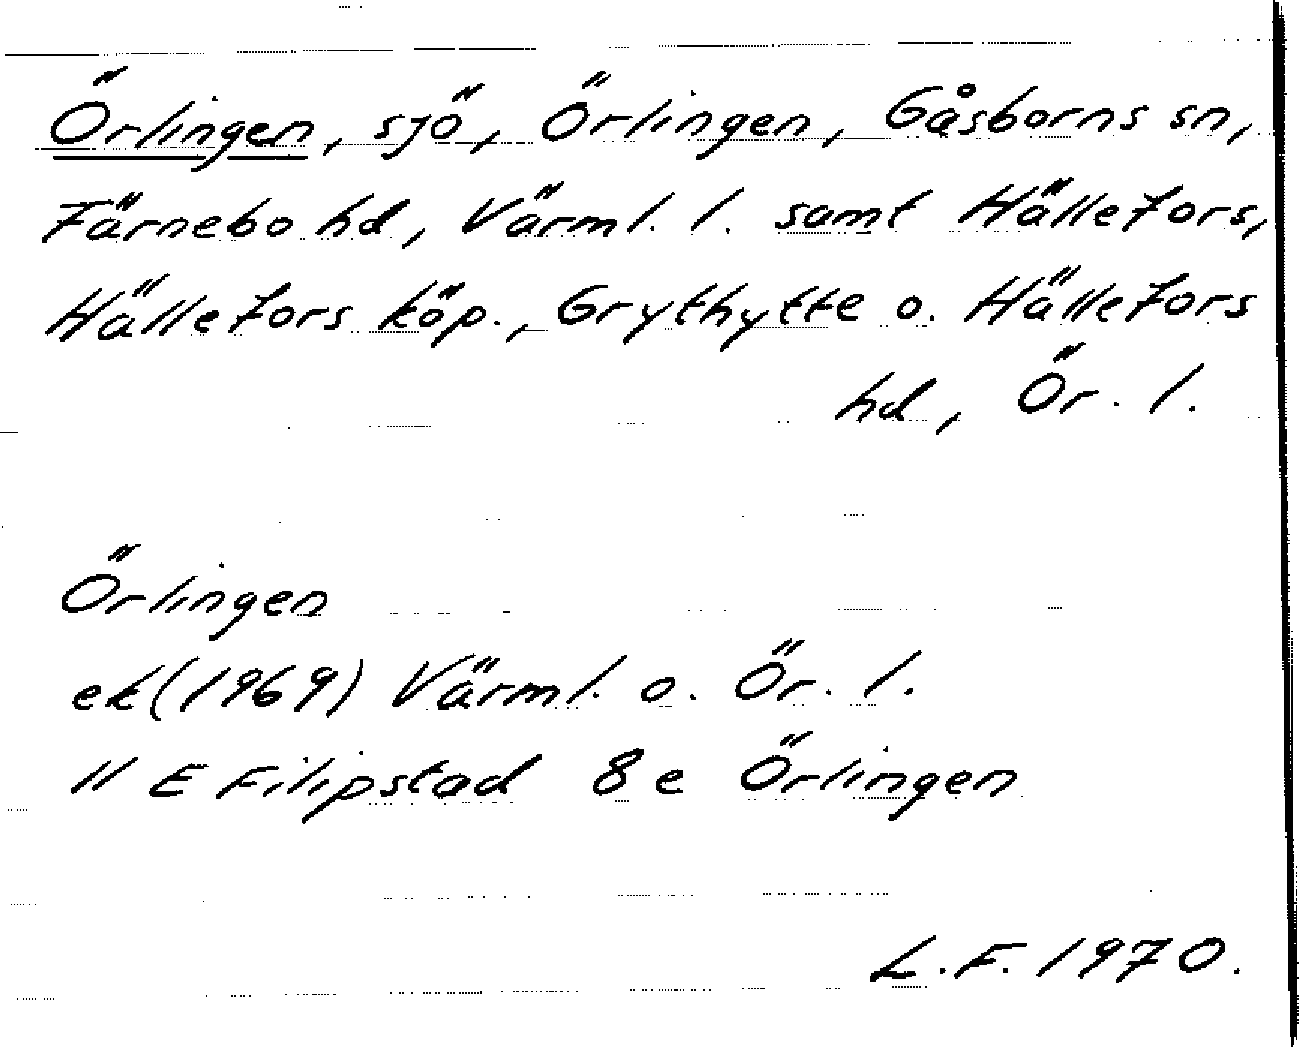 Örlingen, sjö, Örlingen, Gåsborns sn,
Färnebo hd, Värml. l. samt Hällefors,
Hällefors köp., Grythytte o. Hällefors
hd, Ör. l.
Örlingen
ek(1969) Värml. o. Ör. l.
11 E Filipstad 8 e Örlingen
L.F. 1970.